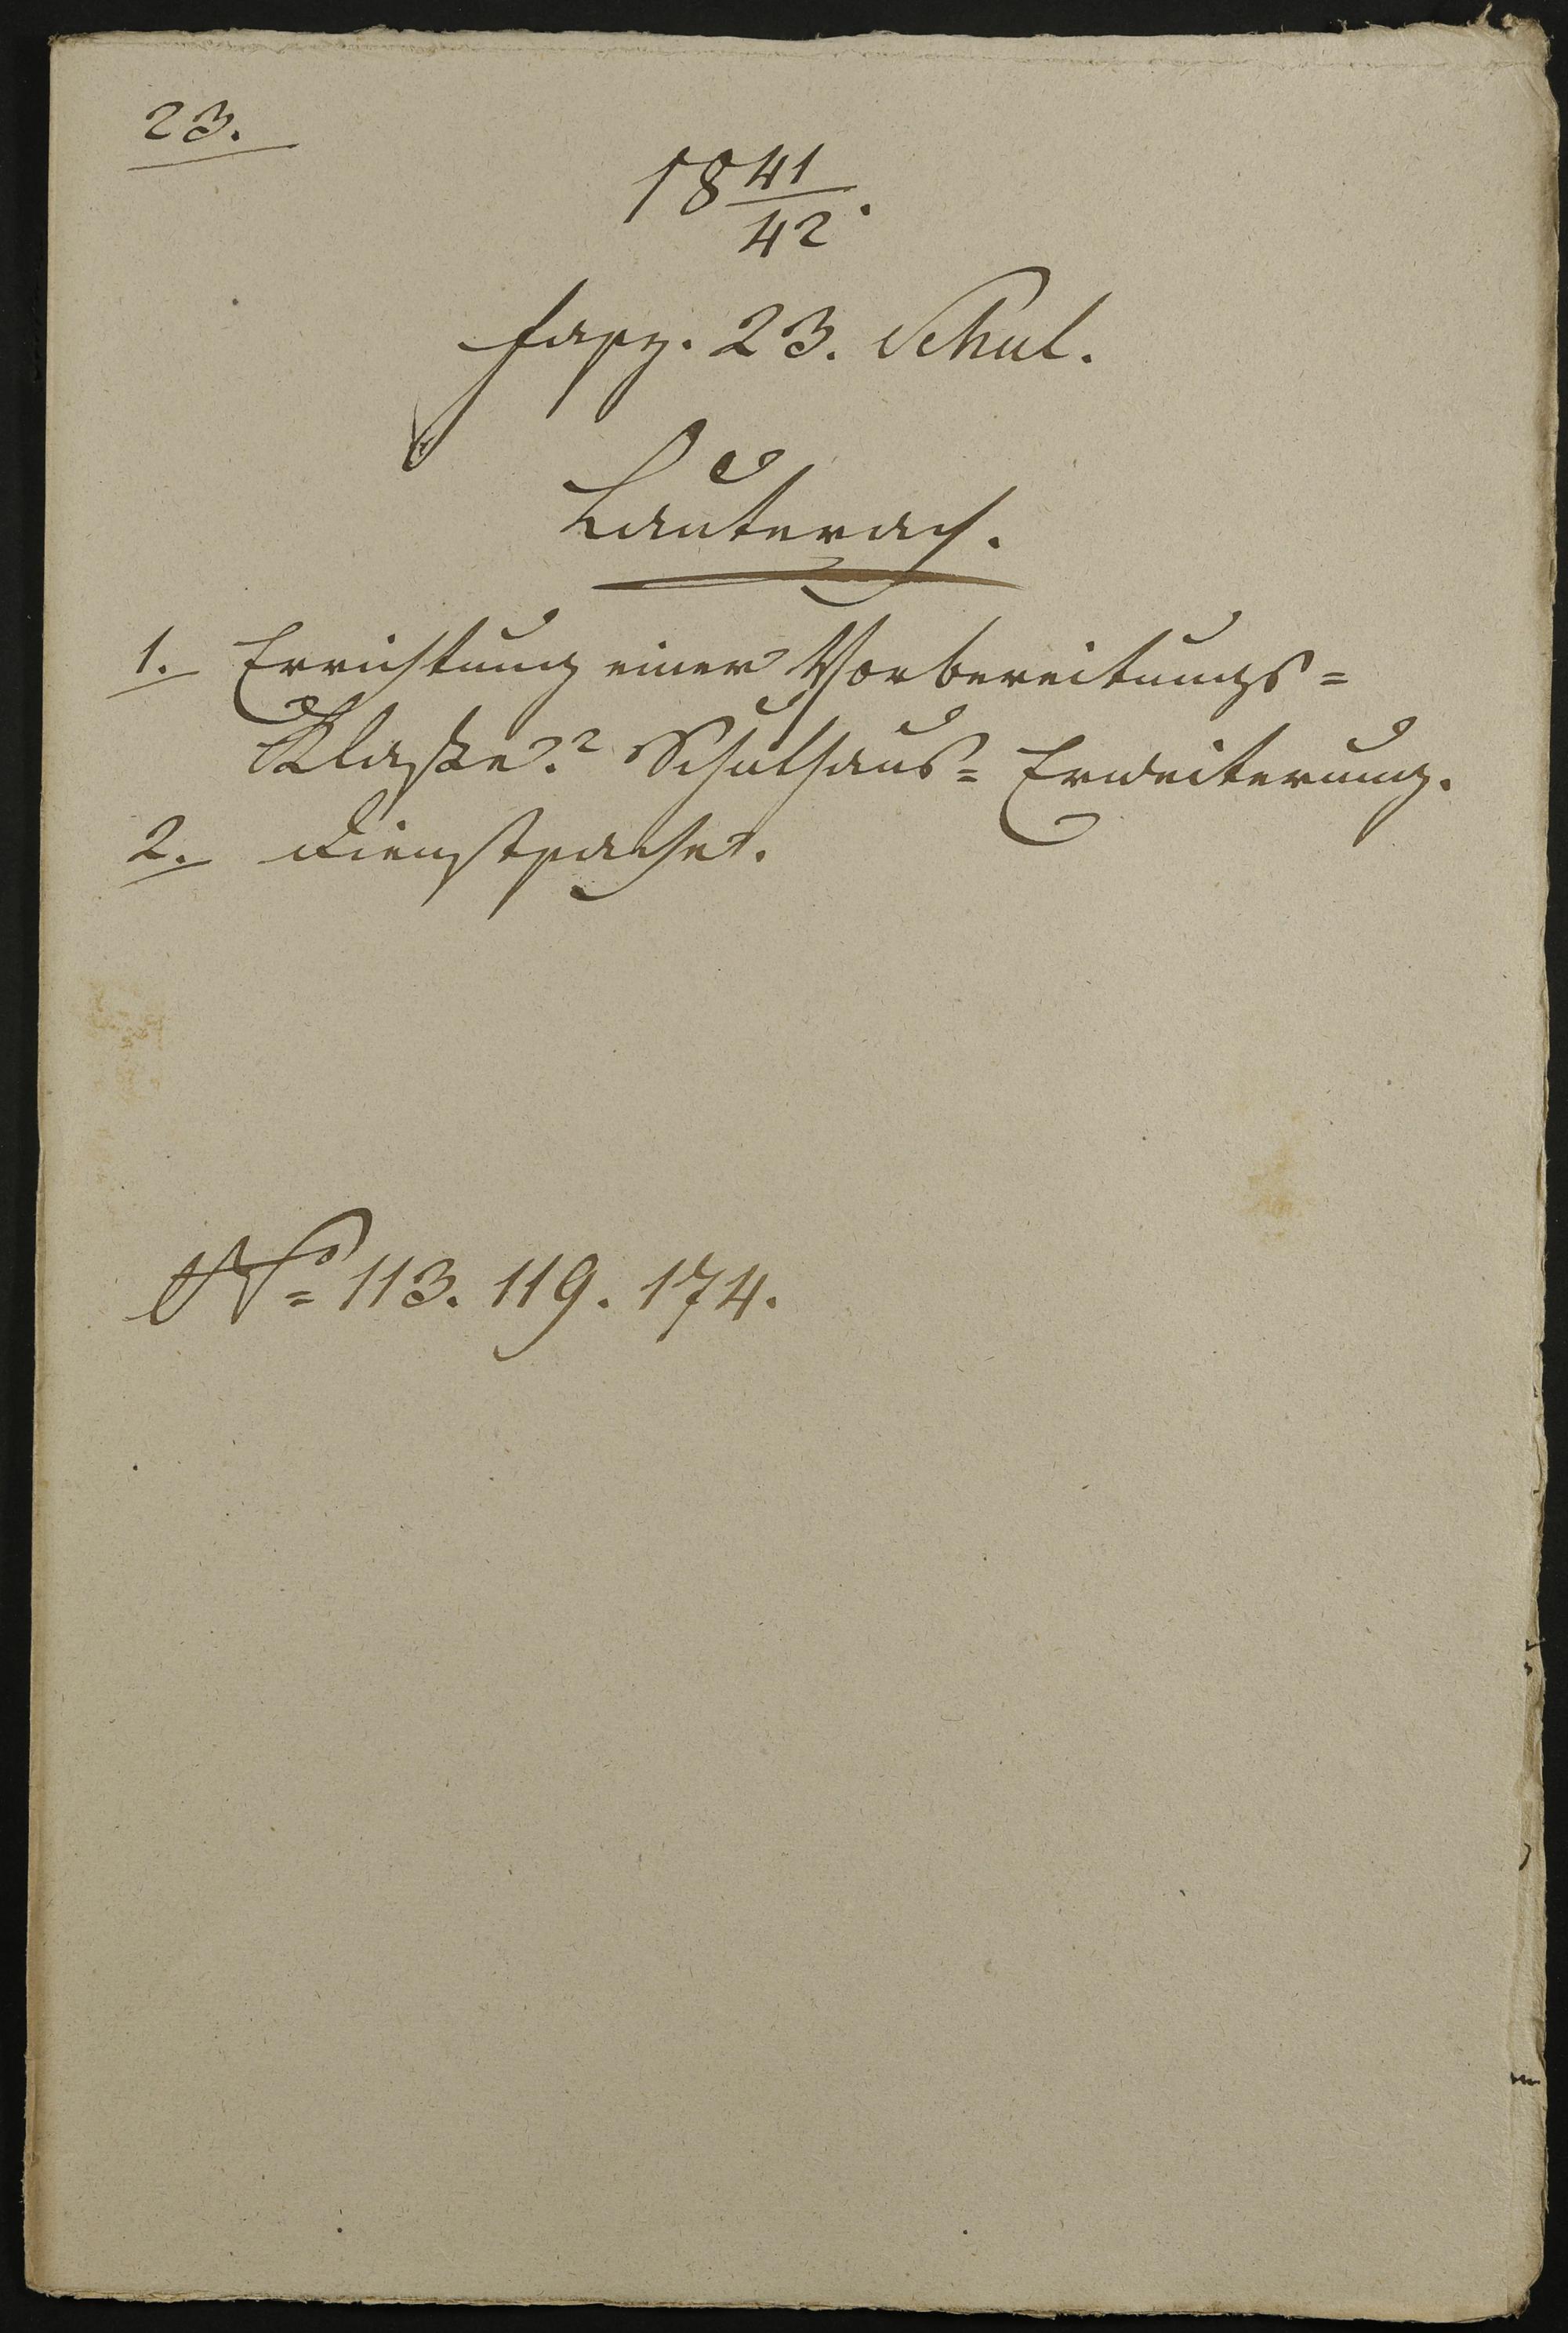 23.
18 41/42.
Fasz. 23. Schul.
Lauterach.
1. Errichtung einer Vorbereitungs=
Klasse? Schulhaus= Erweiterung.
2. Dienstsache.
No= 113. 119. 174.